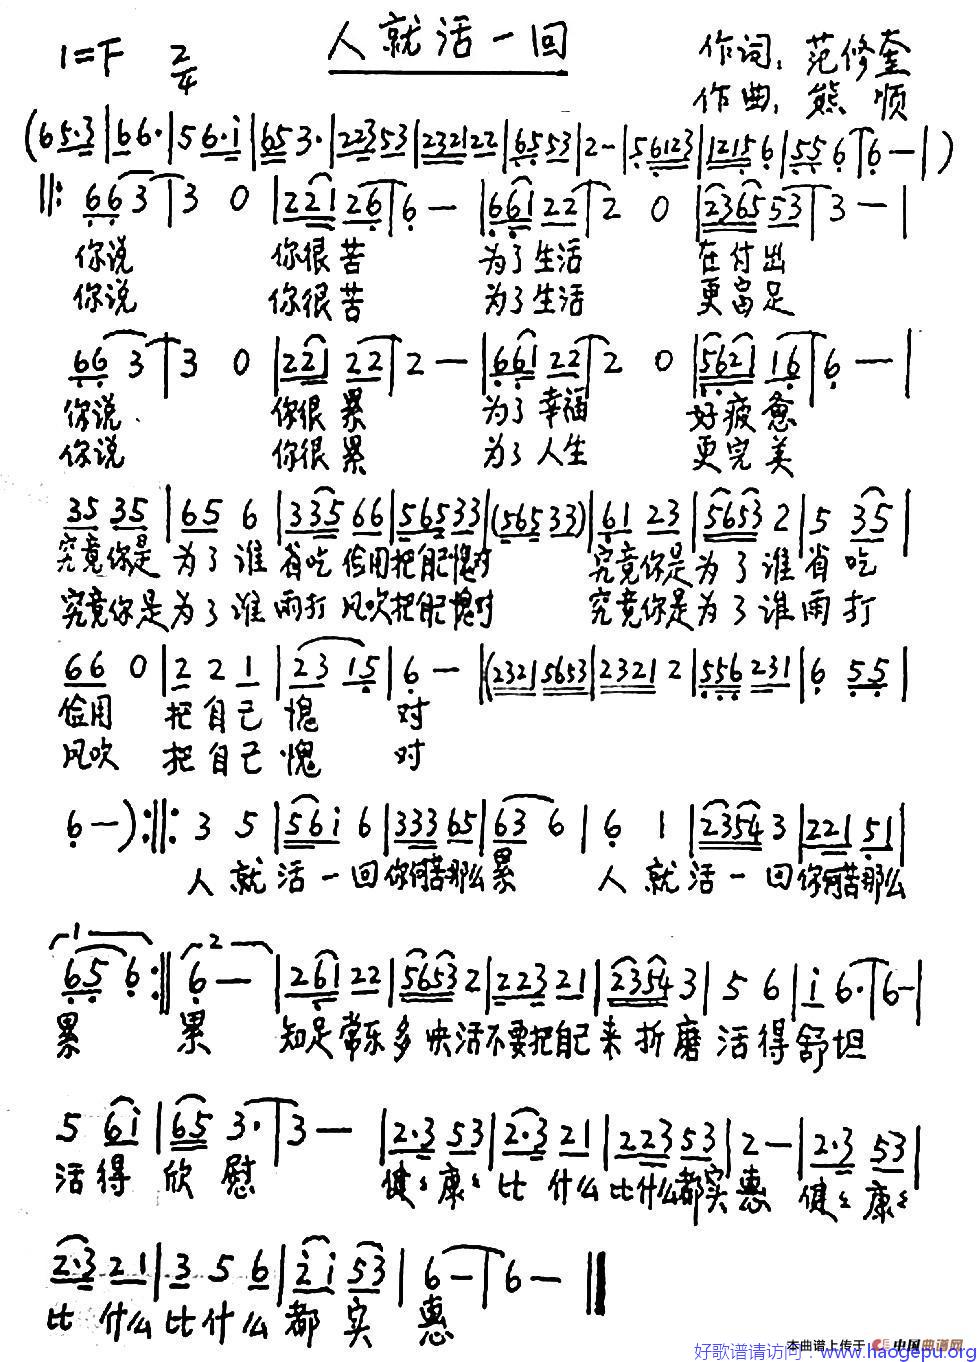 人就活一回
1=F 2/4
作词:范修奎
作曲:熊顺
(6 5·3|6 6·|5 6·i|6 5 3·|2 2 3 5 3|2 3 2 1 2 2|6 5 5 3|2 -|5 6 1 2 3|1 2 1 5 6|5 5 6|6 -|)
||: 6 6 3|3 0|2 2 1 2 6|6 -|6 6 1 2 2|2 0|2 3 6 5 5 3|3 -|
你说 你很苦 为了生活 在付出
你说 你很苦 为了生活 更富足
6 6 3|3 0|2 2 1 2 2|2 -|6 6 1 2 2|2 0|5 6 2 1 1 6|6 -|
你说 你很累 为了幸福 好疲惫
你说 你很累 为了人生 更完美
3 5 3 5|6 5 6|3 3 5 6 6|5 6 5 3 3|(5 6 5 3 3)|6 1 2 3|5 6 5 3 2|5 3 5|
究竟你是为了谁省吃俭用把自己愧对 究竟你是为了谁省吃
究竟你是为了谁雨打风吹把自己愧对 究竟你是为了谁雨打
6 6 0|2 2 1|2 3 1 5|6 -|(2 3 2 1 5 6 5 3|2 3 2 1 2|5 5 6 2 3 1|6 5 5|
俭用 把自己愧 对
风吹 把自己愧 对
6 -):||: 3 5|5 6 i 6|3 3 3 6 5|6 3 6|6 1|2 3 5 4 3|2 2 1 5 1|
人就活一回你何苦那么累 人就活一回你何苦那么
1 2
6 5 6:||6 -|2 6 1 2 2|5 6 5 3 2|2 2 3 2 1|2 3 5 4 3|5 6|i 6·|6 -|
累 累 知足常乐多快活不要把自己来折磨活得舒坦
5 6 i|6 5 3·|3 -|2·3 5 3|2·3 2 1|2 2 3 5 3|2 -|2·3 5 3|
活得欣慰 健々康々比什么比什么都实惠 健々康々
2·3 2 1|3 5 6|2 i 5 3|6 -|6 -||
比什么比什么都实惠
本曲谱上传于 中国曲谱网
好歌谱请访问:www.haogepu.org